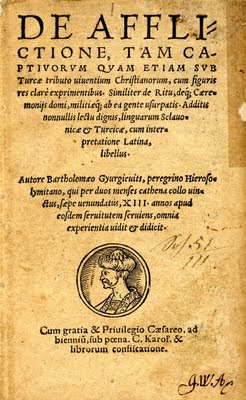 DE AFFLI-
CTIONE, TAM CA-
PTIVORVM QVAM ETIAM SVB
Turcæ tributo uiuentium Christianorum, cum figuris
res clarè exprimentibus. Similiter de Ritu, deq; Cære-
monijs domi, militiæq; ab ea gente usurpatis. Additis
nonnullis lectu dignis, linguarum Sclauo-
nicæ & Turcicæ, cum inter-
pretatione Latina,
libellus.
Autore Bartholomæo Gyurgieuits, peregrino Hieroso-
lymitano, qui per duos menses cathena collo uin-
ctus, sæpe uenundatus, XIII. annos apud
eosdem seruitutem seruiens, omnia
experientia uidit & didicit.
Cum gratia & Priuilegio Cæsareo. ad
bienniũ, sub pœna. C. Karol. &
librorum confiscatione.
G.W.A.